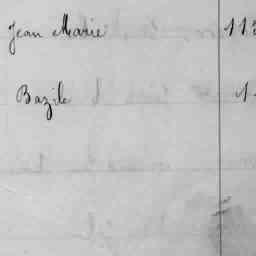 Jean Marie 113
Bazile 1